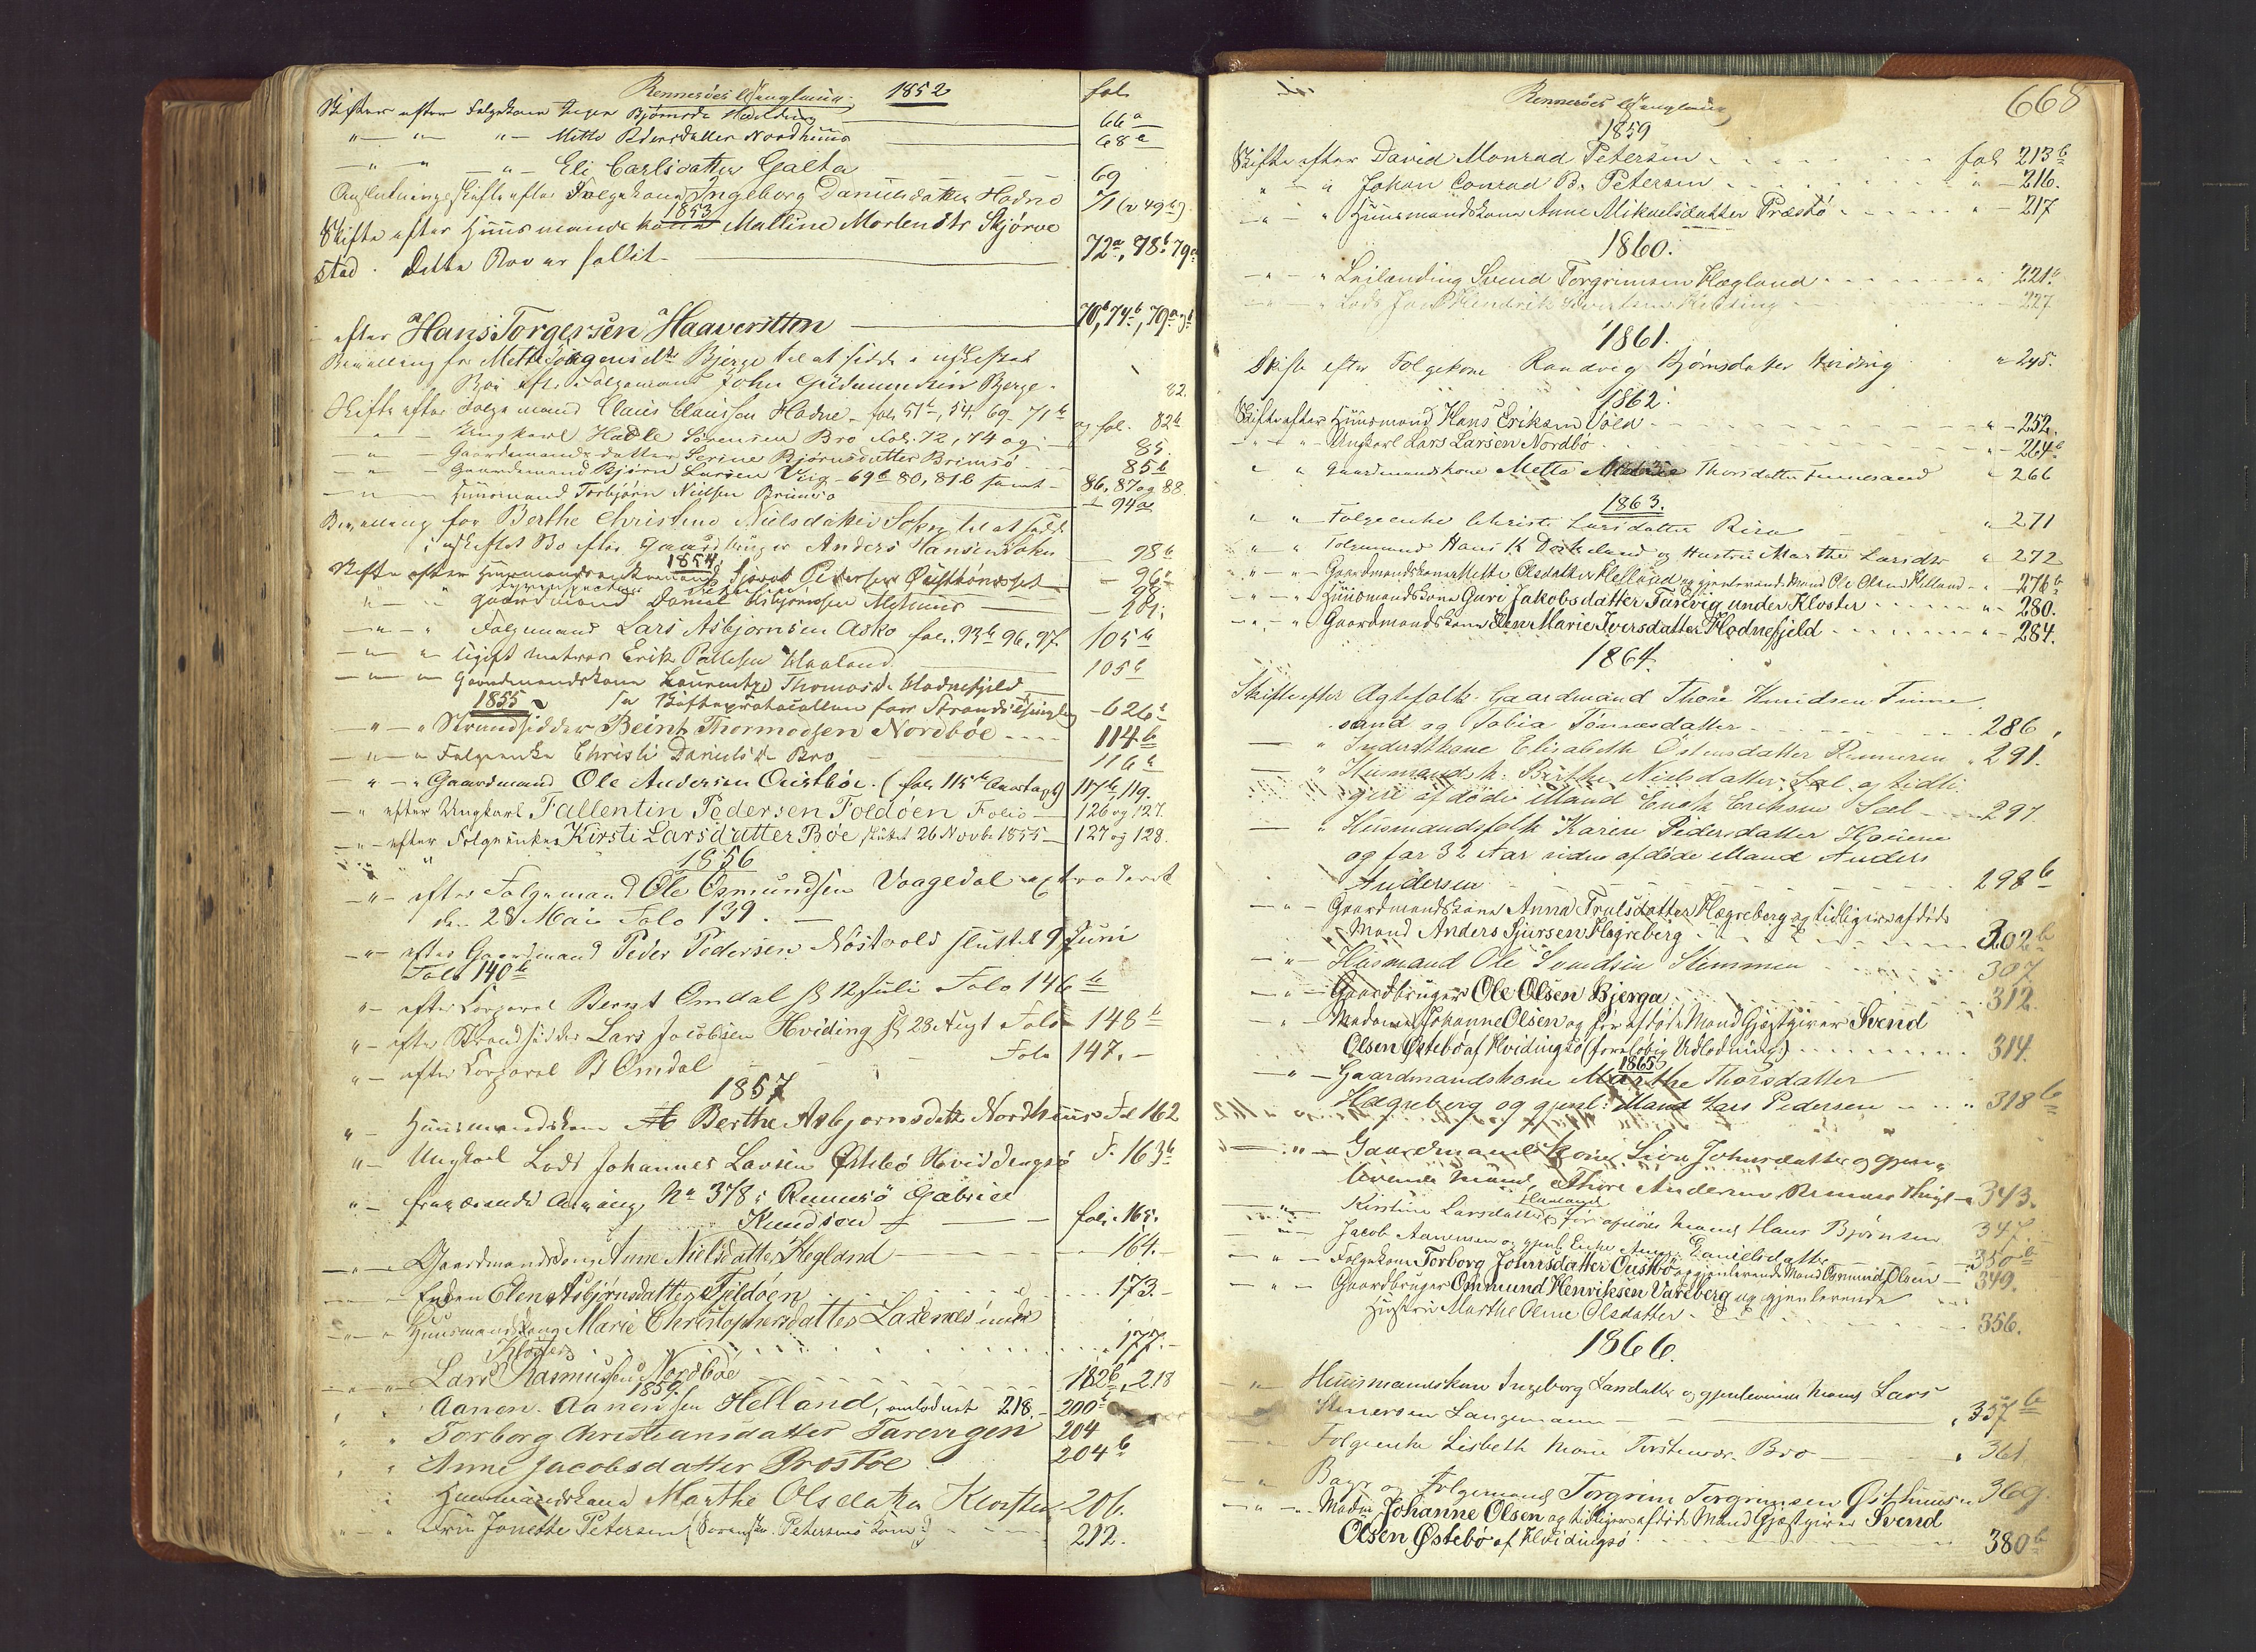 Rennesöes Thinglaug 1852 fol.
Skifter efter Folgekone Björnsdr Hvilding 66a
" " " Mette Pedersdatter Nordhuus 68a
" " " Eli Carlsdatter Galta 69
Anslutningsskifte efter Folgekone Ingeborg Danielsdatter Hodne 71 (v 49b)
1853
Skifte efter Huusmands kone Malline Mortensdtr Skjørve
stad. Dette Boe er fallit 72a, 78b 79a
efter Hans Torgersen Haaversten 70b, 74b, 79a
Bevilling for Mette Jörgensdtr Bjerge til at sidde i uskiftet
Boe efter Folgemand John Gudmundsen Bjerge. 82
Skifte efter Folgemand Claus Claussen Hodne - fol. 51b, 54, 69 - 71b og fol. 82b
" - Ungkarl Hadle Sörensen Bro fol. 72, 74 og 85.
" - Gaardmandsdatter Serine Björnsdatter Brimsö 85b
" - Gaardemand Björn Larsen Viig - 69b 80, 81b samt 86, 87 og 88
" - Huusmand Torbjörn Nielsen Brimsö - 94a
Bevilling for Berthe Christine Nielsdatter Sokn til at sidde
i uskiftet Bo efter Gaardbruger Anders Hansen Sokn 98b
1854
Skifte efter Sjovat Pedersen 96a
" " gaardmand Daniel Asbjörnsen - 101.
" - " Folgemand Lars Asbjornsen Asko fol. 93b 96, 97. 105b
" - " Ugift Matros Erik Pallesen Haaland 105b
" - " Gaardmandskone Laurentze Thomasdr Hodnefjeld
1855 Skifteprotocollen for Strandsidding - 626a
" - " Strandsidder Beint Thormodsen Nordböe 114b
" - " Folgeenke Christi Danielsdr Bro 116a
" - " Gaardmand Ole Andersen Oustböe. (fol. 115b Qvæstagt) 117b, 119.
" efter Ungkarl Fallentin Pedersen Foldöen Folio 126 og 127.
" - efter Folgeenke Kirsti Larsdatter Böe sluttet 26 Novbr 1855 127 og 128.
1856
" - efter Folgemand Ole Osmundsen Vaagedal extraderet
den 28 Mai Folo 139.
" - efter Gaardmand Peder Pedersen Nöstvold sluttet 9 Juni
Folo 140b
" - efter Corporal Bernt Omdal 12 Juli Folo 146b
" - efter Strandsidder Lars Jacobsen Hviding 28 Augt Folo 148b
" - efter Corporal B Omdal Folo 147. -
1857
" - Huusmandskone Berthe Asbjornsdatter Nordhuus Fol 162
" - Ungkarl Lods Johannes Larsen Østebö Hviddingsö F. 163b
" - fraværende Arving No 378, Rennesö Gabriel
Knudsen fol. 165.
" - Gaardmandskone Anne Nielsdatter Hegland 164.
" - Enken Elen Asbjørnsdatter Fjeldöen 173.
" - Huusmandskone Marie Christophersdatter Laxenes under
Kloster 177.
" - " Lars Rasmussen Nordböe 182b, 218
1859.
" " Aanen Aanensen Helland, omlodnet 218. 200
" " Torborg Christiansdatter Farevigen 204
" " Anne Jacobsdatter Prostöe 204b
Huusmandskone Marthe Olsdatter Kloster 206.
" - " Fru Jonette Petersen (Sorensk. Petersens kone) 212.
668
Rennesöes Thinglaug
1859
Skifte efter David Monrad Petersen fol 213b
" - " Johan Conrad B. Petersen " - 216.
" - " Huusmandskone Anne Mikaelsdatter Præstö " - 217
1860.
" - " Leilænding Svend Torgrimsen Hægland 221b
" - " Lods Jacob Hendrik Hviding 227
1861.
Skifte efter Folgekone Randveg Bjørnsdatter Hviding " 245.
1862.
Skifte efter Huusmand Hans Eriksen Vola " - 252.
" - " - Ungkarl Lars Larsen Nordbö " - 264b
" " Gaardmandskone Mette Thorsdatter Finnesand " 266
1863.
" " Folgeenke Christi Larsdatter Risa " 271
" " Folgemand Hans K Dakeland og Hustru Marthe Larsdr " 272
" - Gaardmandskone Mette Olsdatter Helland og gjenlevende Mand Ole Olsen Helland " 276b
" - " Huusmandskone Guri Jakobsdatter Farevig under Kloster " - 280.
" - " Gaardmandskone Elen Marie Iversdatter Hodnefjeld " - 284.
1864.
Skifte efter Ægtefolk Gaardmand Thore Knudsen Finne
sand og Tobia Tönnesdatter 286.
" Inderstkone Elisabeth Østensdatter Rennesen " 291.
" Husmandsk. Birthe Nielsdatter Sæl og tidli
gere afdöde Mand Enok Eriksen Sæl 297.
" Husmandsfolk Karen Pedersdatter
og for 32 Aar siden afdöde Mand Anders
Andersen 298b
" - Gaardmandskone Anna Trulsdatter Hægreberg og tidligere afdöde
Mand Anders Sjursen Hegreberg 302b
" - Husmand Ole Svendsen Stemmen 307
" - Gaardbruger Ole Olsen Bjerga 312
" - Madame Johanne Olsen og för afdøde Mand Gjæstgiver Svend
Olsen Østebö af Hvidingsö (foreløbig Udlodning) 314.
1865
" - Gaardmandskone Marthe Thorsdatter
Hægreberg og gjenl: Mand Lars Pedersen 318b
" - Gaardmandskone Siri Johnsdatter og gjen-
levende Mand, Thore Andersen 343.
Kirstine Larsdatter Haaland før afdøde Mand Hans Bjørnsen 347.
" Jacob Aanensen og gjenl Enke Anna Danielsdatter 350b
" - " Folgekone Torborg Johnsdatter Oustbö og gjenlevende Mand Osmund Olsen - 349.
" - " Gaardbruger Ommund Henriksen Vareberg og gjenlevende
Hustru Marthe Oline Olsdatter 356.
1866.
" Huusmandskone Ingeborg Larsdatter og gjenlevende Mand Lars
Langemann 357b
Folgeenke Lisbeth Marie Torstensdr Bro " 361
" Bager og Folgemand Torgrim Torgrimsen Østhuus " 369.
" - " Madm Johanne Olsen og tidligere afdøde Mand Gjæstgiver Svend
Olsen Østebö af Hvidingsö 380b